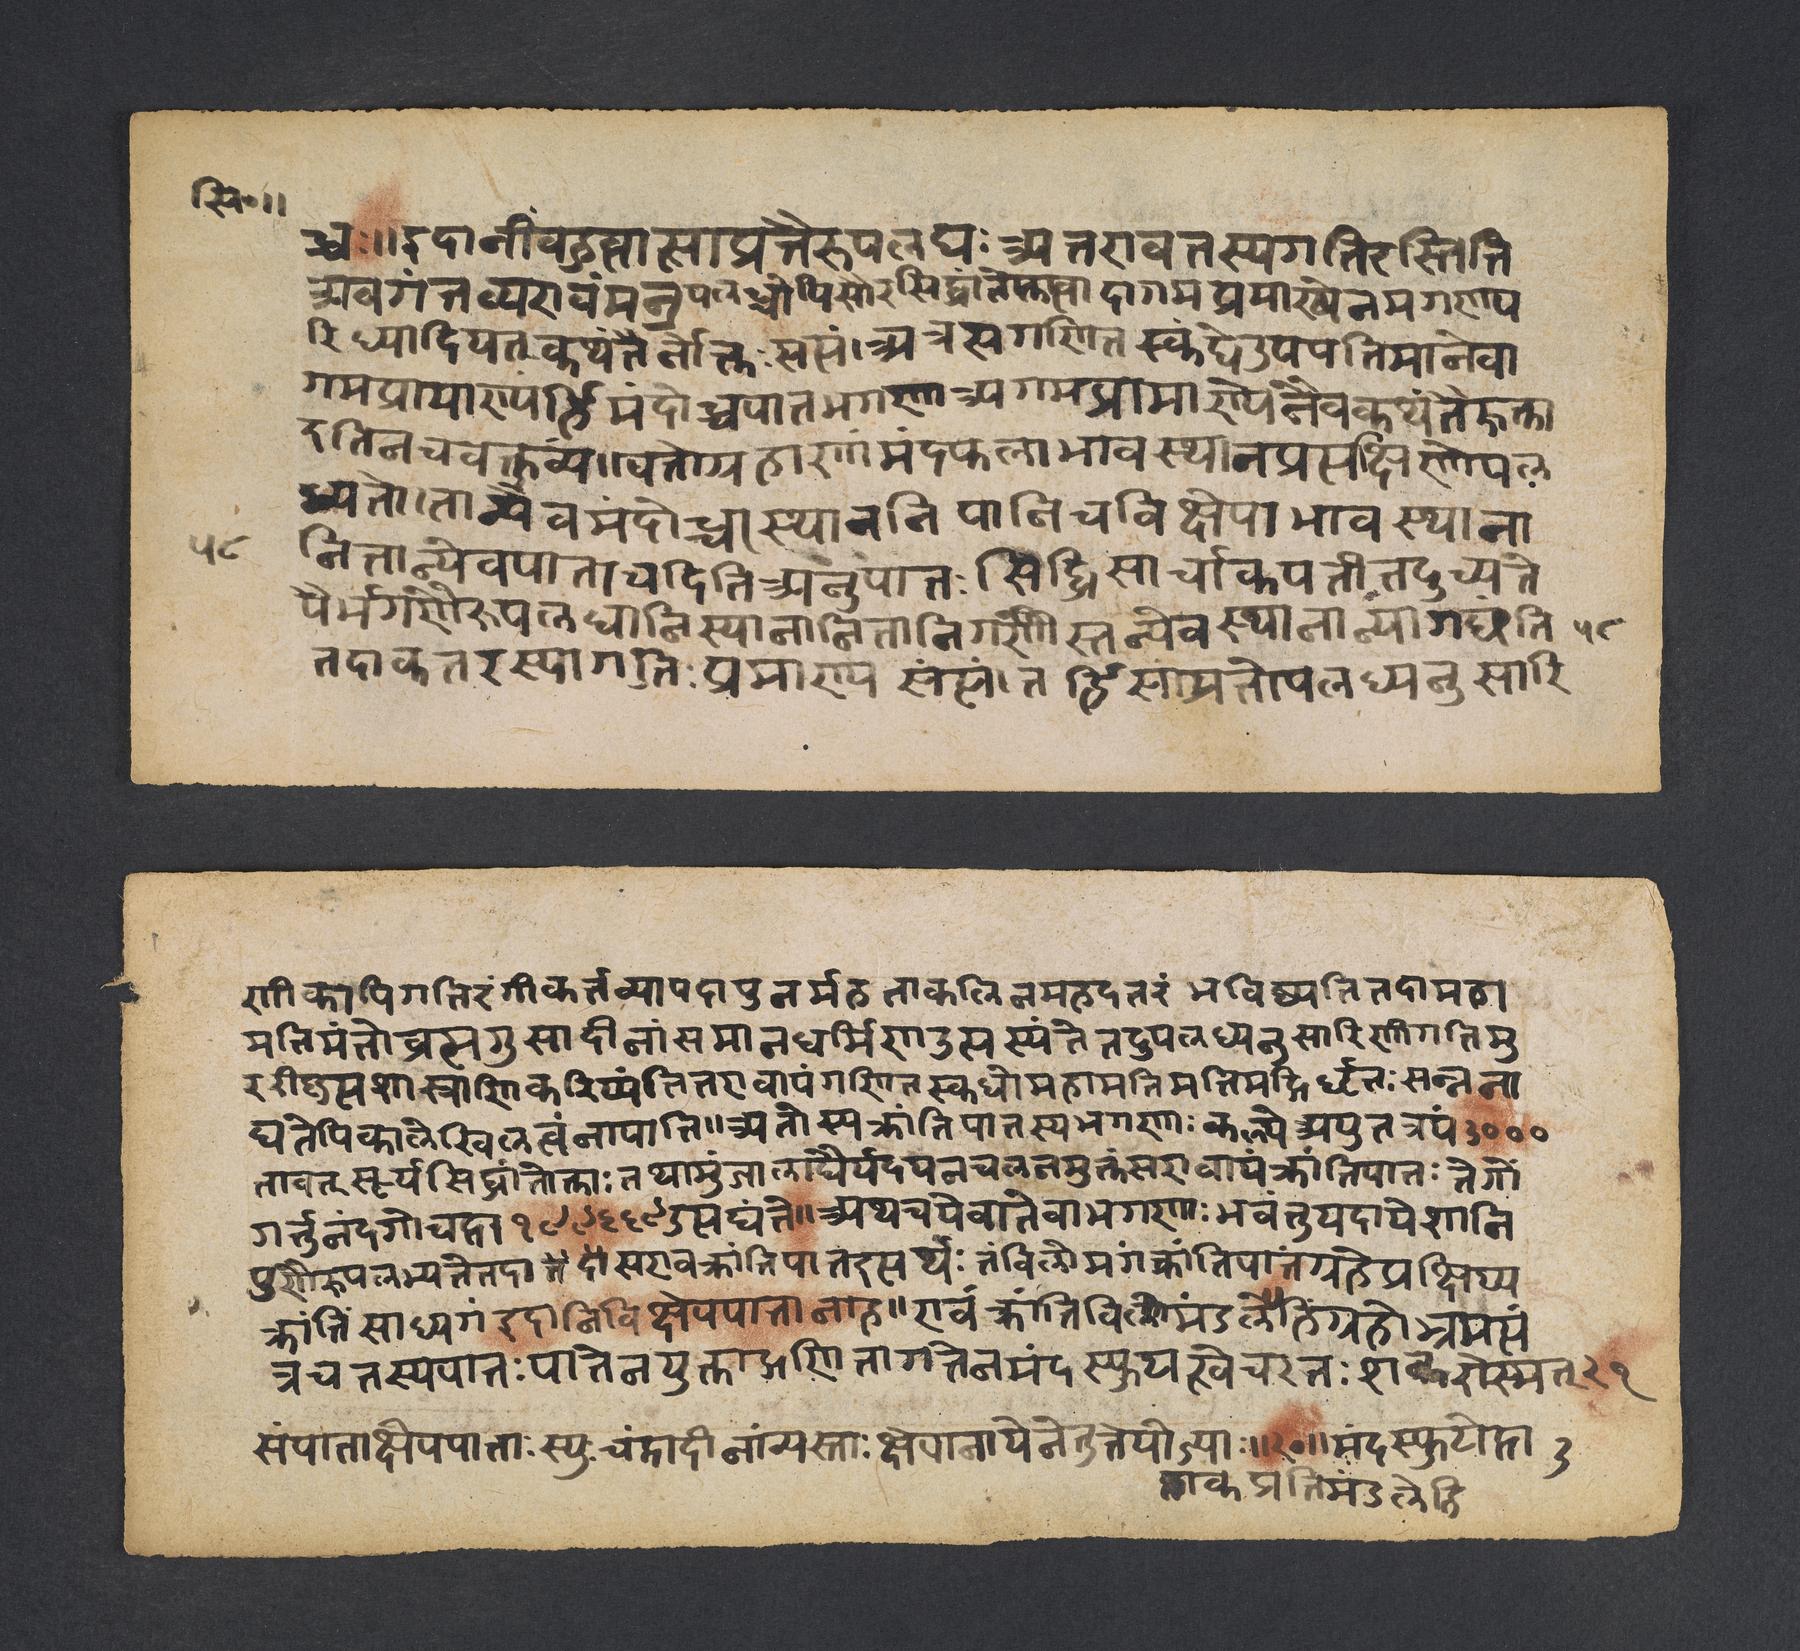 सि॰॥
ध्वः॥इदानीं वहुत्वात्सांप्रतैरुपलघः अतरावतस्यगतिरस्तिति
अवगंतव्यरावंमनुपलब्धोपिसौरसिद्धांतोक्तत्वादागमप्रमाण्येनमगणप
रिध्यादिपत्कथंतैर्नोक्तः सत्यं।अत्रसगणितस्कंधेउपपतिमानेवा
गमप्रायाण्यंर्तिमंदोच्चपातभगणाअगमप्रामाण्येनैवकथंतैरुक्ता
इतिनचवक्तुंव्यं॥यतोग्रहाणांमंदफलाभावस्थानप्रत्यक्षिणोपल
ध्यते।तान्येवमंदोच्चास्थाननि पानिचविक्षेपाभावस्थाना
५८ नित्तान्येवपाताचदितिअनुपातः सिद्धिसार्चाकपतीतदुच्यते
पैर्भगणैरुपलघानिस्थानानितानिगणैस्तन्येवस्थानान्यागघंति ५८
तदाकतरस्यागतिः प्रमाण्यं सत्यं।तर्हिसांप्रतोपलध्यनुसारि
णीकापिगतिरंगीकर्त्तव्यापदापुनर्महताकालेनमहदंतरं भविष्यतितदामहा
मतिमंतोब्रह्मगुसादीनांसमानधर्मिणउत्पत्स्यंतेतदुपलध्यनुसारिणीगतिमु
ररीकृत्यशास्त्राणिकरिष्यंतितरावापंगणितस्कधोमहामतिमतिमद्भिर्धृतः सन्नना
घतेपिकालेखिलत्वंनापाति॥अतोस्यक्रांतिपातस्यभगणाः कल्पेअपुतत्रपं३०००
तावत्सूर्यसिधांतोक्ताः तथामुंजालाद्यैर्यदयनचलनमुक्तंसरावापंक्रांतिपातः तेगों
गर्त्तुनंदगोचद्रा१९९६६९उत्पघंते॥अथचपेवातेवाभगणाः भवंतुपदापेशानि
पुणैरुपलभ्यतेतदा सरावक्रांतिपातइत्यर्थः तंविलोमगंक्रांतिपातंग्रहेप्रक्षिप्य
क्रांतिं साध्यगं इदानिविक्षेपपातानाह॥रावंक्रांतिविमंडलेतिग्रहोभ्रमत्यं
त्रचतस्यपातः पातेनयुक्ताद्गणितागतेनमंदस्फुयत्खेचरतः शरोस्मात् २१
संपाताक्षेपपाताः स्युःचंद्रादीनांव्यस्ताः क्षेपानायेनेतुतेयोज्याः॥२०॥मंदस्फुटोद्रा ३
त्ताकप्रतिमंडलेहि